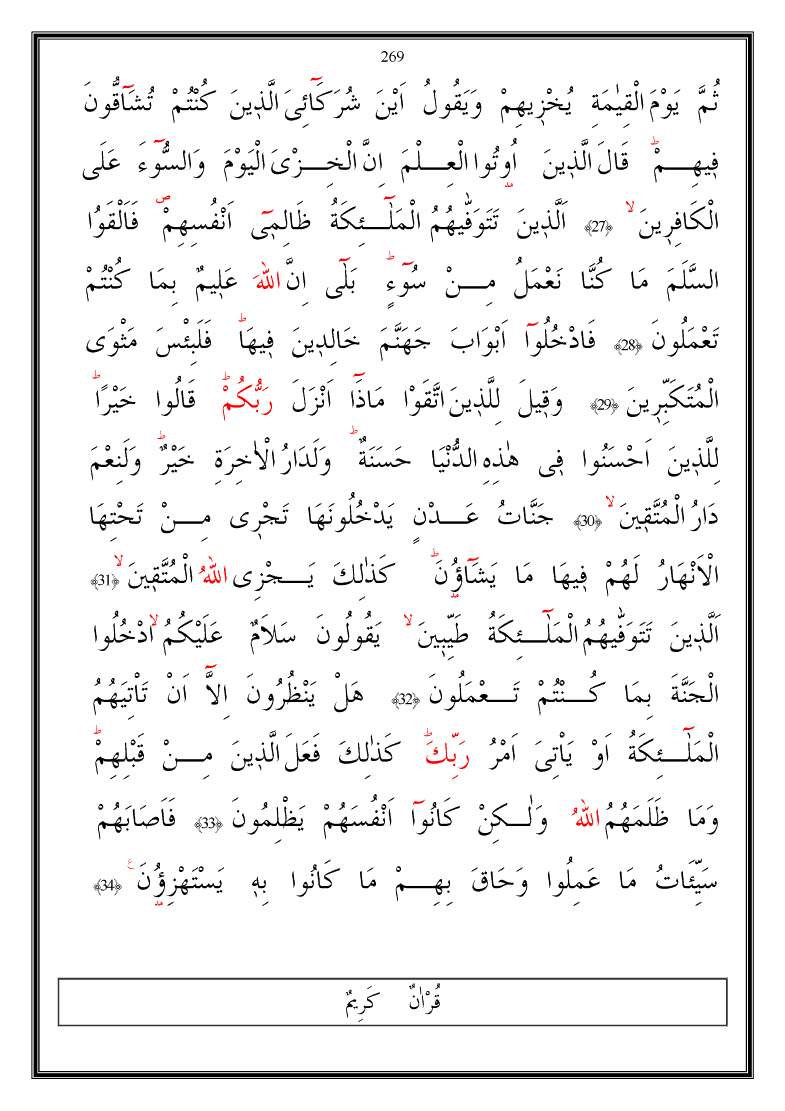 269
ثُمَّ يَوْمَ الْقِيٰمَةِ يُخْزٖيهِمْ وَيَقُولُ اَيْنَ شُرَكَٓائِىَ الَّذٖينَ كُنْتُمْ تُشَٓاقُّونَ
فٖيهِـــمْؕ قَالَ الَّذٖينَ اُو۫تُوا الْعِـــلْمَ اِنَّ الْخِـــزْىَ الْيَوْمَ وَالسُّٓوءَ عَلَى
الْكَافِرٖينَۙ ﴿27﴾ اَلَّذٖينَ تَتَوَفّٰيهُمُ الْمَلٰٓـــئِكَةُ ظَالِمٖٓى اَنْفُسِهِمْࣕ فَاَلْقَوُا
السَّلَمَ مَا كُنَّا نَعْمَلُ مِـــنْ سُٓوءٍؕ بَلٰٓى اِنَّ اللّٰهَ عَلٖيمٌ بِمَا كُنْتُمْ
تَعْمَلُونَ ﴿28﴾ فَادْخُلُٓوا اَبْوَابَ جَهَنَّمَ خَالِدٖينَ فٖيهَاؕ فَلَبِئْسَ مَثْوَى
الْمُتَكَبِّرٖينَ ﴿29﴾ وَقٖيلَ لِلَّذٖينَ اتَّقَوْا مَاذَٓا اَنْزَلَ رَبُّكُمْؕ قَالُوا خَيْرًاؕ
لِلَّذٖينَ اَحْسَنُوا فٖى هٰذِهِ الدُّنْيَا حَسَنَةٌؕ وَلَدَارُ الْاٰخِرَةِ خَيْرٌؕ وَلَنِعْمَ
دَارُ الْمُتَّقٖينَۙ ﴿30﴾ جَنَّاتُ عَـــدْنٍ يَدْخُلُونَهَا تَجْرٖى مِـــنْ تَحْتِهَا
الْاَنْهَارُ لَهُمْ فٖيهَا مَا يَشَٓاؤُ۫نَؕ كَذٰلِكَ يَـــجْزِى اللّٰهُ الْمُتَّقٖينَۙ ﴿31﴾
اَلَّذٖينَ تَتَوَفّٰيهُمُ الْمَلٰٓـــئِكَةُ طَيِّبٖينَۙ يَقُولُونَ سَلَامٌ عَلَيْكُمُۙ ادْخُلُوا
الْجَنَّةَ بِمَا كُـــنْتُمْ تَـــعْمَلُونَ ﴿32﴾ هَلْ يَنْظُرُونَ اِلَّٓا اَنْ تَاْتِيَهُمُ
الْمَلٰٓـــئِكَةُ اَوْ يَاْتِىَ اَمْرُ رَبِّكَؕ كَذٰلِكَ فَعَلَ الَّذٖينَ مِـــنْ قَبْلِهِمْؕ
وَمَا ظَلَمَهُمُ اللّٰهُ وَلٰـــكِنْ كَانُٓوا اَنْفُسَهُمْ يَظْلِمُونَ ﴿33﴾ فَاَصَابَهُمْ
سَيِّئَاتُ مَا عَمِلُوا وَحَاقَ بِهِـــمْ مَا كَانُوا بِهٖ يَسْتَهْزِؤُ۫نَࣖ ﴿34﴾
قُرْاٰنٌ كَرٖيمٌ